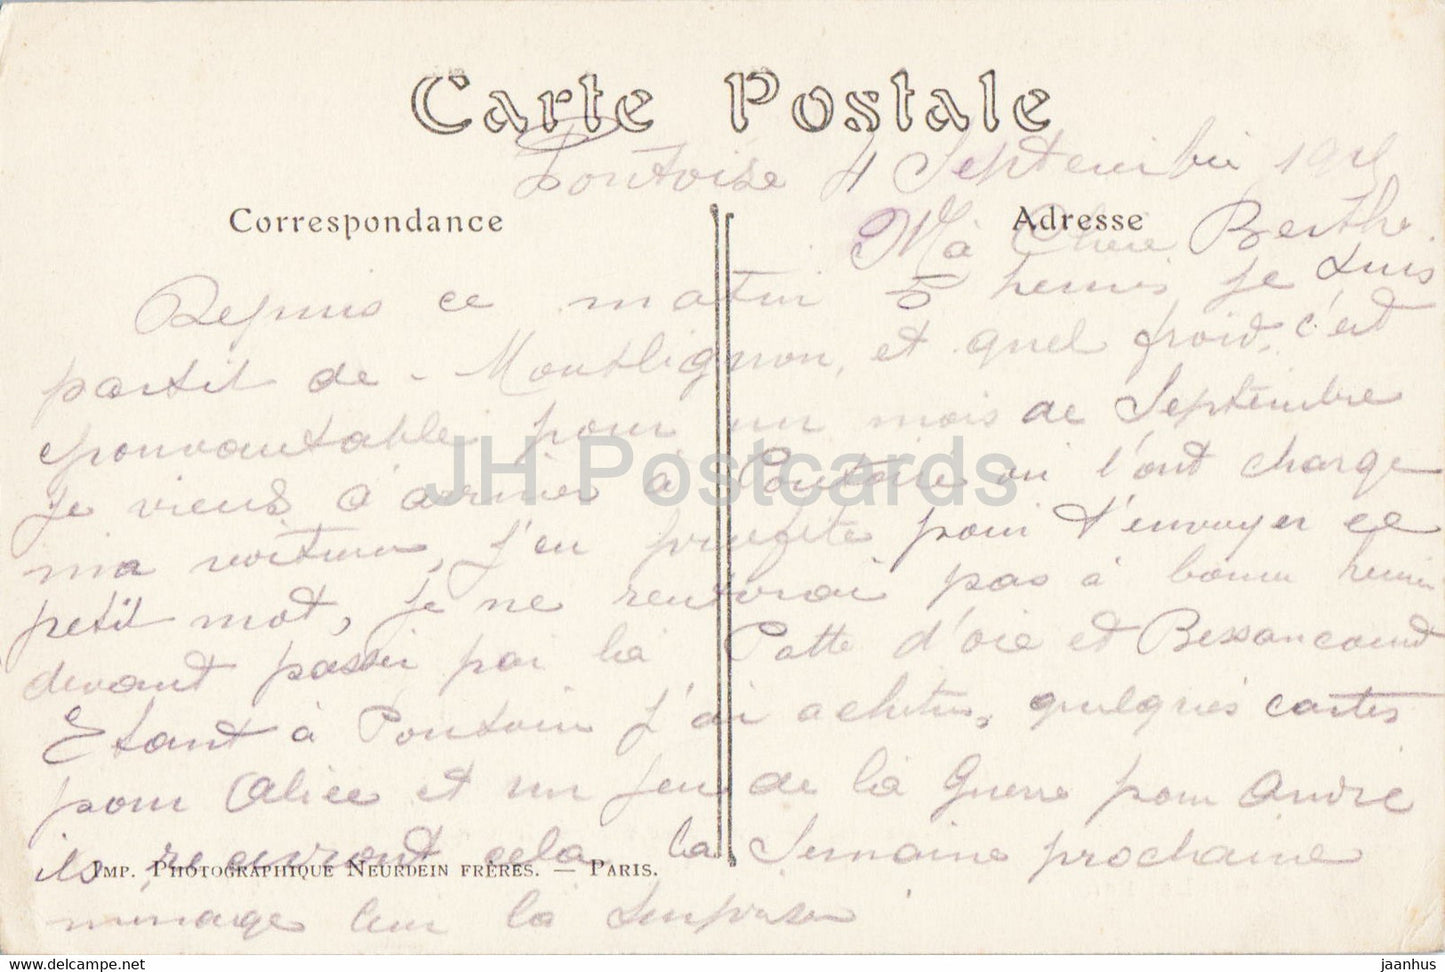 Carte Postale
Pontoise 4 Septembre 191
Correspondance
Adresse
Ma Chère Berthe
Depuis ce matin heures je suis
partit de - Montlignon, et quel froid, c'est
épouvantable pour un mois de Septembre
je viens d'arriver à Pontoise ou l'ont charge
ma voiture, j'en profite pour t'envoyer ce
petit mot, je ne rentrerai pas à bonne heure
devant passer par la Patte d'oie et Bessancourt
Etant à Pontoise j'ai acheter, quelques cartes
pour Alice et un jeu de la Guerre pour André
ils recevront cela la Semaine prochaine
menage leur la surprise
IMP. PHOTOGRAPHIQUE NEURDEIN FRÈRES. — PARIS.
JH Postcards
https://www.delcampe.net
jaanhus